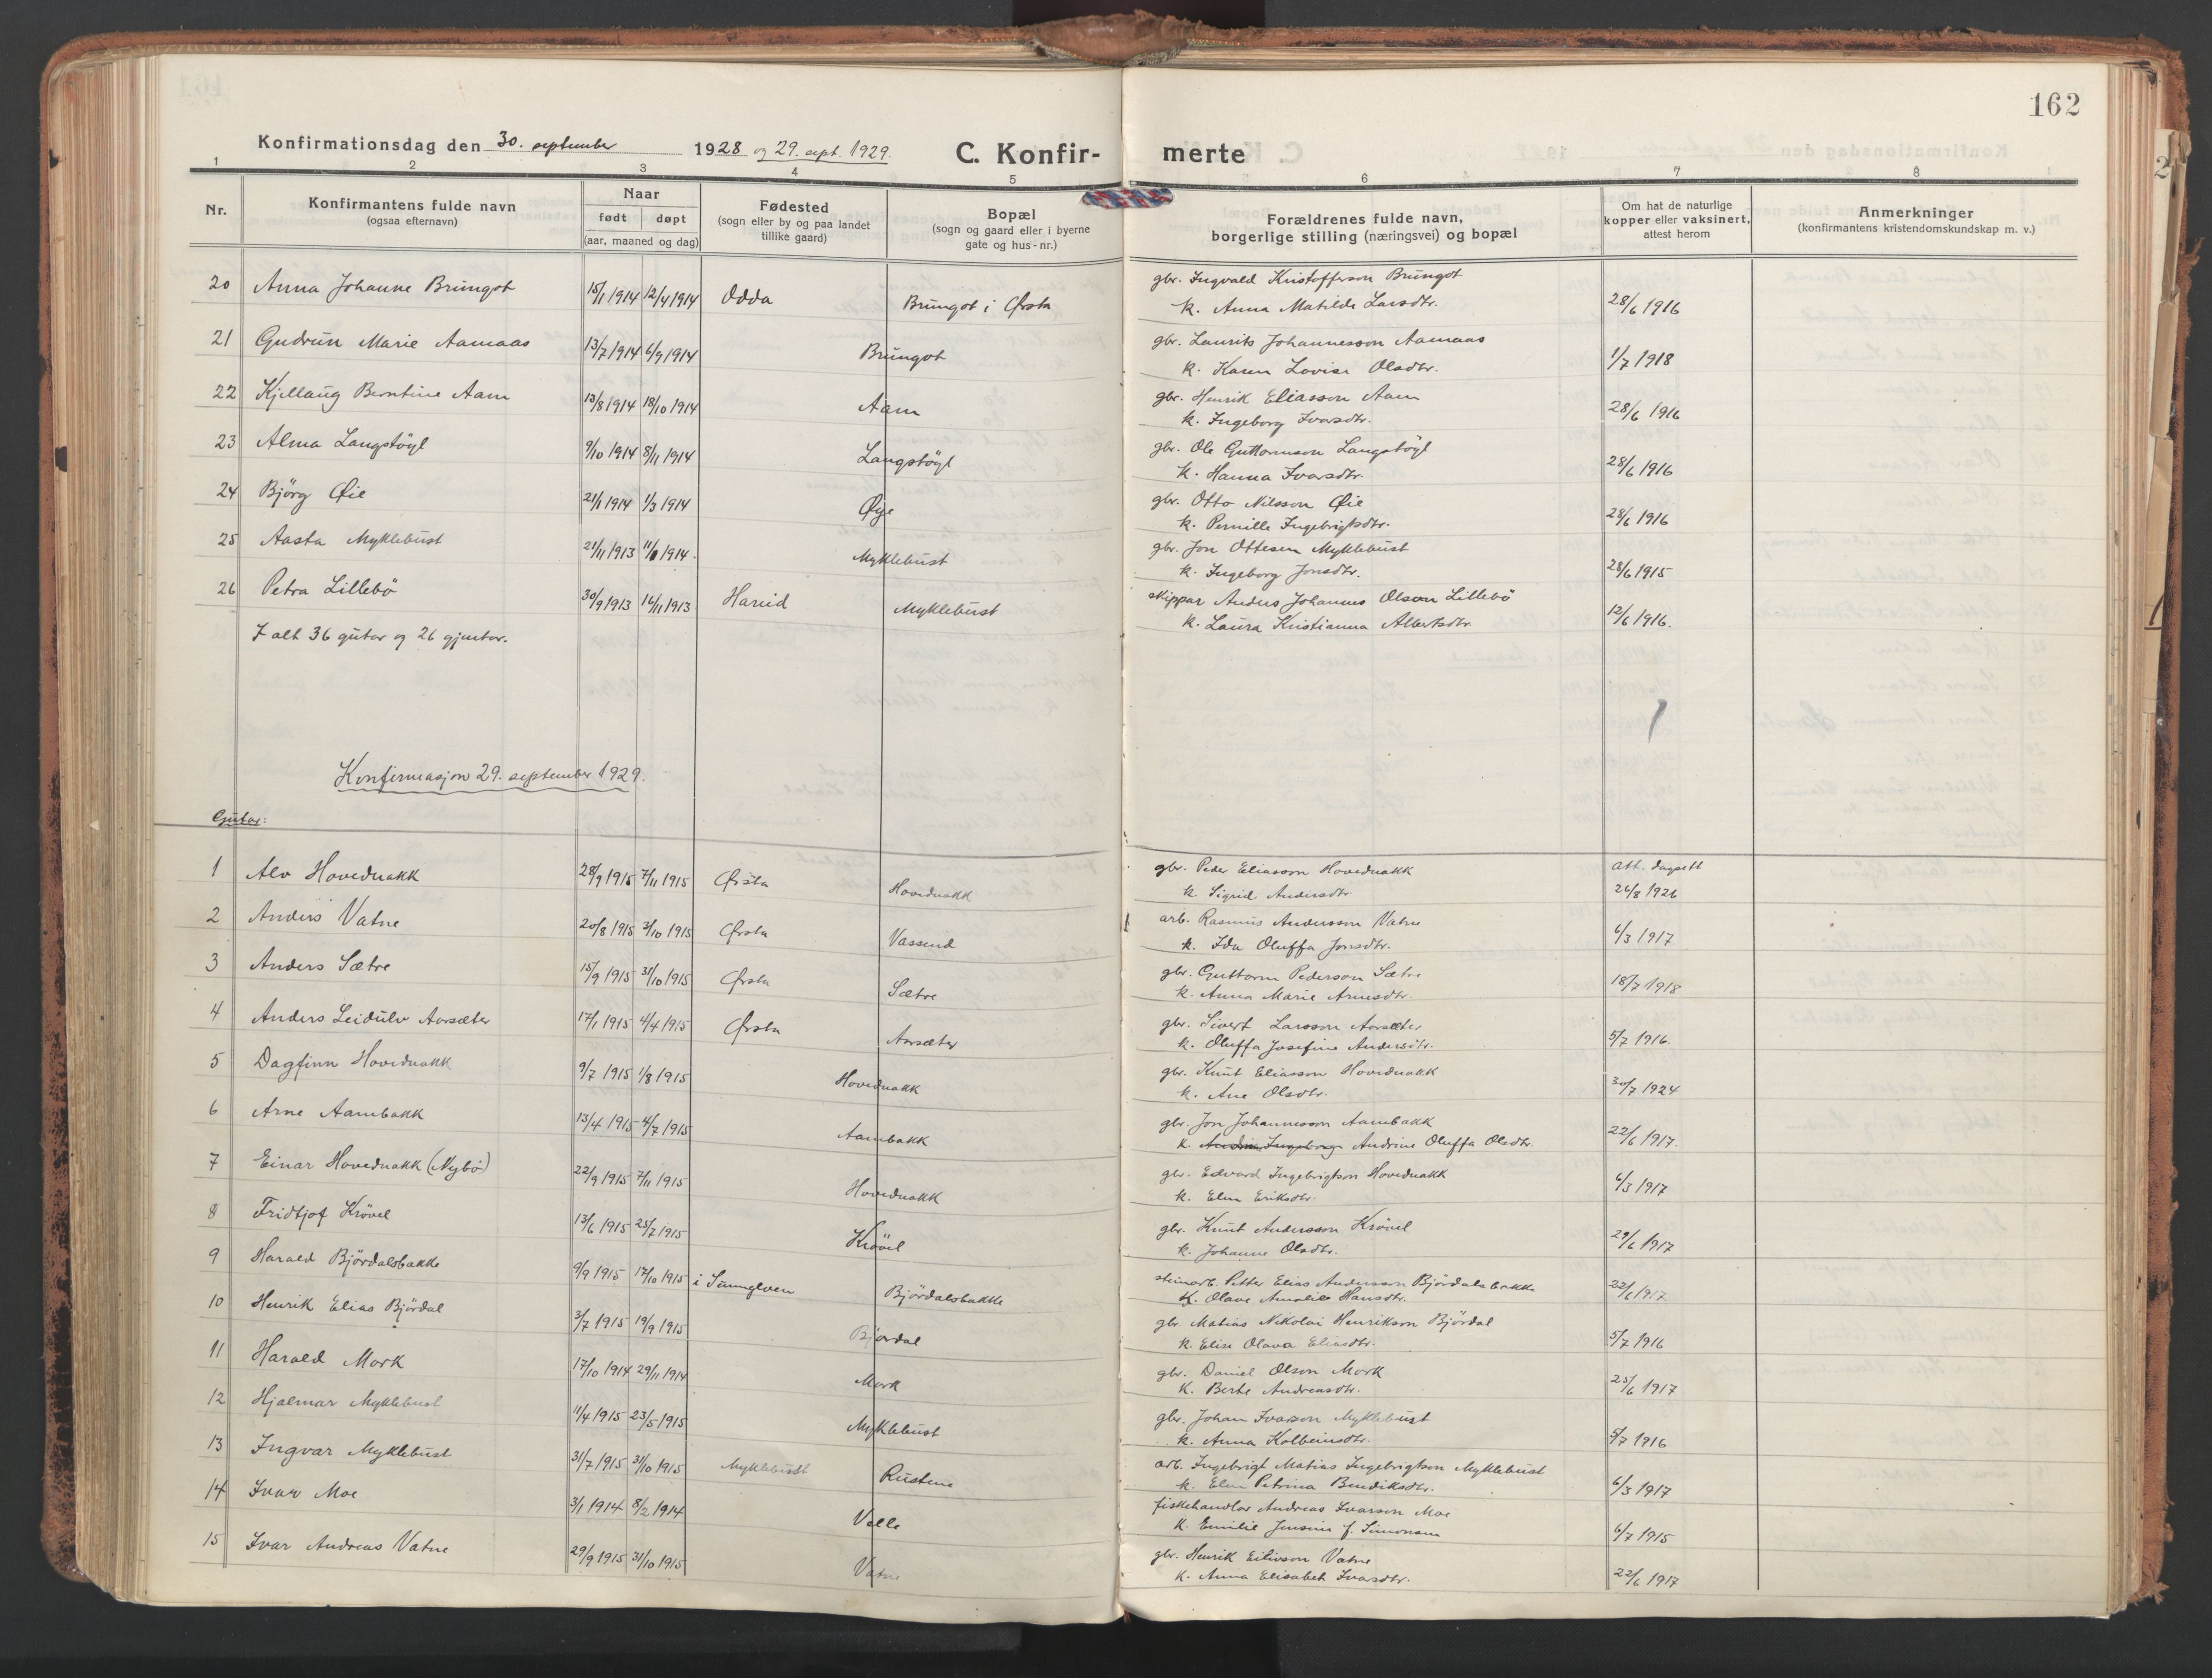 162
Konfirmationsdag den 30. september 1928 og 29. sept. 1929. C. Konfir- merte
1 2 3 4 5 6 7 8
Nr. Konfirmantens fulde navn (ogsaa efternavn) Naar født døpt (aar, maaned og dag) Fødested (sogn eller by og paa landet tillike gaard) Bopæl (sogn og gaard eller i byerne gate og hus-nr.) Forældrenes fulde navn, borgerlige stilling (næringsvei) og bopæl Om hat de naturlige kopper eller vaksinert, attest herom Anmerkninger (konfirmantens kristendomskundskap m. v.)
20 Anna Johanne Brungot 15/1 1914 12/4 1914 Odda Brungot i Ørsta gbr. Ingvald Kristofferson Brungot
k. Anna Matilde Larsdtr. 28/6 1916
21 Gudrun Marie Aamaas 13/7 1914 6/9 1914 Brungot gbr. Laurits Johannesson Aamaas
k. Karen Lovise Olsdtr. 1/7 1918
22 Kjellaug Berntine Aam 13/8 1914 18/10 1914 Aam gbr. Henrik Eliasson Aam
k. Ingeborg Ivarsdtr. 28/6 1916
23 Alma Langstöyl 9/10 1914 8/11 1914 Langstöyl gbr. Ole Guttormson Langstöyl
k. Hanna Ivarsdtr. 28/6 1916
24 Björg Øie 21/1 1914 1/3 1914 Øye gbr. Otto Nilsson Øie
k. Pernille Ingebrigtsdtr. 28/6 1916
25 Aasta Myklebust 21/11 1913 1914. Myklebust gbr. Jon Ottesen Myklebust
k. Ingeborg Jonsdtr. 28/6 1915
26 Petra Lillebö 30/9 1913 16/11 1913 Hareid Myklebust skippar Anders Johannes Olson Lillebö
k. Laura Kristianna Albertsdtr. 12/6 1916.
I alt 36 gutar og 26 gjentor.
Konfirmasjon 29. september 1929.
Gutar:
1 Alv Hovednakk 28/9 1915 7/11 1915 Ørsta Hovednakk gbr. Peder Eliasson Hovednakk att. dagsett
k. Sigrid Andersdtr. 26/8 1926
2 Anders Vatne 20/8 1915 3/10 1915 Ørsta Vassend arb. Rasmus Andersson Vatne
k. Ida Oluffa Jonsdtr. 6/3 1917
3 Anders Sætre 15/9 1915 31/10 1915 Ørsta Sætre gbr. Guttorm Pederson Sætre
k. Anna Marie Arnesdtr. 18/7 1918
4 Anders Leidulv Aarsæter 17/1 1915 4/4 1915 Ørsta Aarsæter gbr. Sivert Larsson Aarsæter
k. Oluffa Josefine Andersdtr. 5/7 1916.
5 Dagfinn Hovednakk 9/7 1915 1/8 1915 Hovednakk gbr. Knut Eliasson Hovednakk
k. Ane Olsdtr. 30/7 1924
6 Arne Aambakk 13/4 1915 4/7 1915 Aambakk gbr. Jon Johannesson Aambakk
k. Andrine Oluffa Olsdtr. 22/6 1917.
7 Einar Hovednakk (Nybö) 22/9 1915 7/11 1915 Hovednakk gbr. Edvard Ingebrigtson Hovednakk
k. Elen Eriksdtr. 6/3 1917
8 Fridtjof Krövel 13/6 1915 25/7 1915 Krövel gbr. Knut Andersson Krövel
k. Johanne Olsdtr. 29/6 1917
9 Harald Björdalsbakke 9/9 1915 17/10 1915 i Sunnylven Björdalsbakke steinarb. Petter Elias Andersson Björdalsbakke
k. Olave Amalie Hansdtr. 22/6 1917
10 Henrik Elias Björdal 3/7 1915 19/9 1915 Björdal gbr. Matias Nikolai Henrikson Björdal
k. Elise Olava Eliasdtr. 5/7 1916
11 Harald Mork 17/10 1914 29/11 1914 Mork gbr. Daniel Olson Mork
k. Berte Andreasdtr. 25/6 1917
12 Hjalmar Myklebust 11/4 1915 23/5 1915 Myklebust gbr. Johan Ivarson Myklebust
k. Anna Kolbeinsdtr. 5/7 1916
13 Ingvar Myklebust 31/7 1915 31/10 1915 Myklebust Rustene arb. Ingebrigt Matias Ingebrigtson Myklebust
k. Elen Petrina Bendiksdtr. 6/3 1917
14 Ivar Moe 3/1 1914 8/2 1914 Velle fiskehandlar Andreas Ivarson Moe
k. Emilie Jensine f. Simonsen 6/7 1915
15 Ivar Andreas Vatne 29/9 1915 31/10 1915 Vatne gbr. Henrik Eilivson Vatne
k. Anna Elisabet Ivarsdtr. 22/6 1917